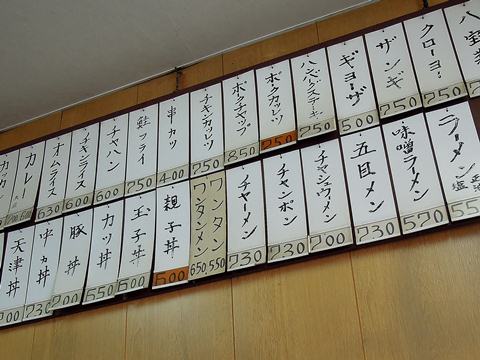 クローヨー 750
ザンギ 750
ギョーザ 500
ハンバーグステーキ 750
ポークカツレツ 750
ポークチャップ 850
チキンカツレツ 750
串カツ 400
鮭フライ 750
チャハン 600
チキンライス 600
オムライス 630
カレー
ラーメン 塩 正油 55
味噌ラーメン 570
五目メン 730
チャシュウメン 700
チャンポン 730
チャーメン 730
ワンタン 550
ワンタンメン 650
親子丼 600
玉子丼 600
カツ丼 650
豚丼 700
中カ丼 730
天津丼 700